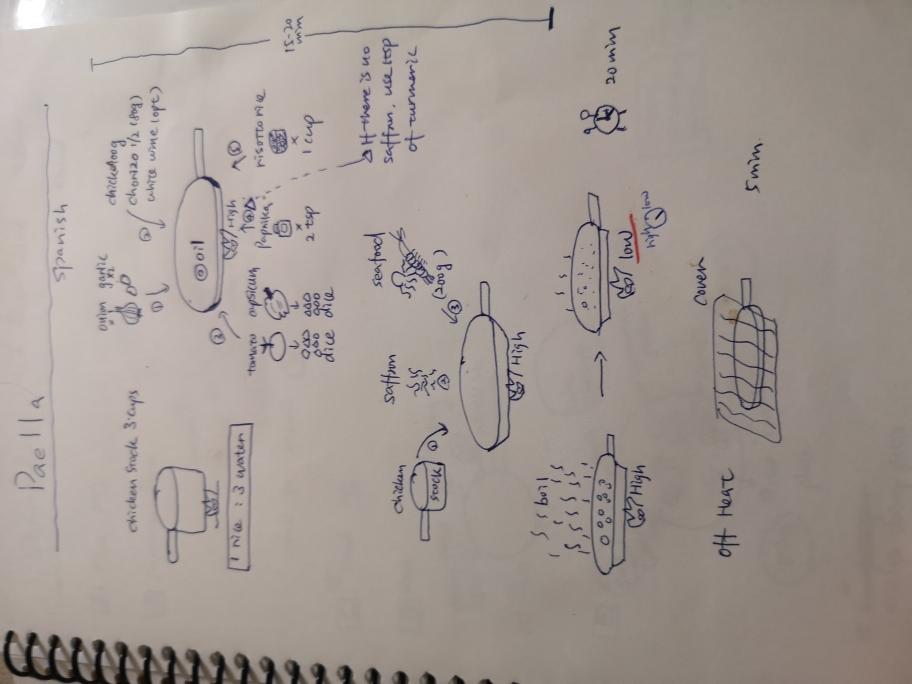 Paella
Spanish
chicken stock 3 cups
1 rice : 3 water
onion garlic
x2
①
②
chorizo 1/2 (80g)
white wine (opt)
⓪ oil
High
③
tomato
capsicum
dice
dice
④
paprika
x
2 tsp
⑤
risotto rice
x
1 cup
15-20
min
If there is no
saffran, use 1 tsp
of turmeric
chicken
stock
①
saffron
②
seafood
(200g)
③
High
boil
High
low
high low
20 min
off Heat
cover
5 min